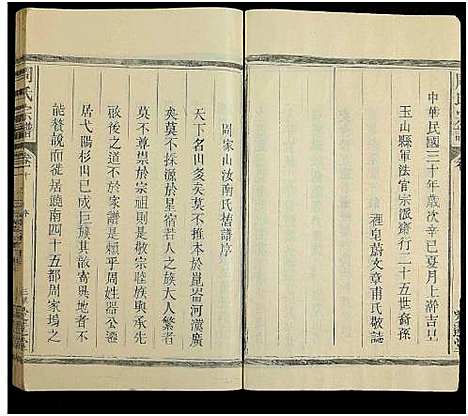 中華民國三十年歲次辛巳夏月上澣吉旦
玉山縣軍法官宗派齋行二十五世裔孫
裡皂蔚文章甫氏敬誌
周家山汝南氏楷譜序
天下名山多矣莫不祖於崑崙河漢廣
矣莫不探源於星宿若人之族大人繁者
莫不尊崇於宗祖則是敬宗睦族與承先
啟後之道不於家譜是賴乎周姓器公遷
居弋陽杉山已成巨族其寄輿地者已
能贅說而從居饒南四十五都周家塢之
周氏宗譜